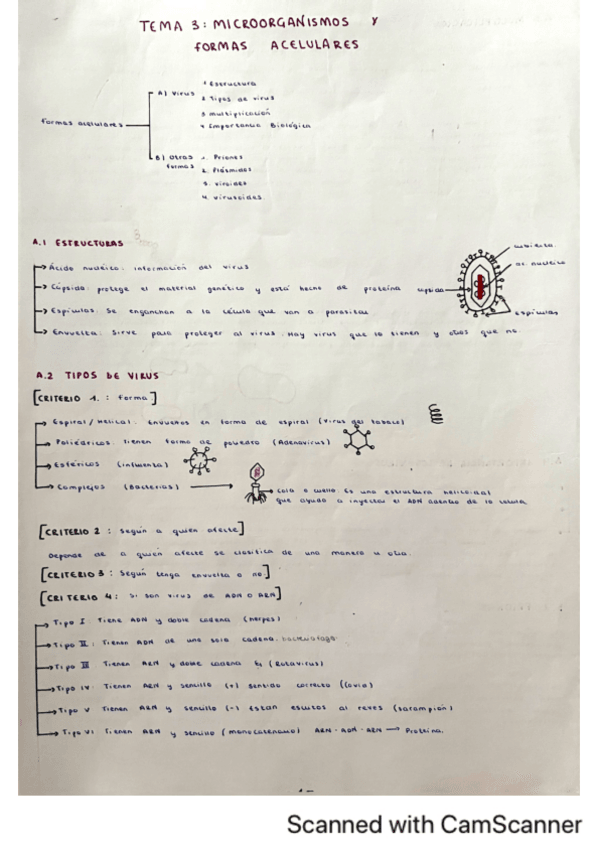 TEMA 3: MICROORGANISMOS Y
FORMAS ACELULARES
Formas acelulares
A) Virus
1. Estructura
2. Tipos de virus
3. Multiplicación
4. Importancia Biológica
B) Otras formas
1. Priones
2. Plásmidos
3. Viroides
4. Virusoides.
A.1 ESTRUCTURAS
Ácido nucleico: información del virus
Cápsida: protege el material genético y está hecho de proteína
Espículas: Se enganchan a la célula que van a parasitar
Envuelta: Sirve para proteger al virus. Hay virus que lo tienen y otros que no.
cubierta
ac. nucleico
cápsida
espículas
A.2 TIPOS DE VIRUS
[CRITERIO 1. : Forma]
Espiral / Helical: Envueltos en forma de espiral (Virus del tabaco)
Poliédricos: Tienen forma de poliedro (Adenovirus)
Esféricos (influenza)
Complejos (Bacterias)
Cola o cuello Es una estructura helicoidal
que ayuda a inyectar el ADN adentro de la célula
[CRITERIO 2 : Según a quien afecte]
Depende de a quién afecte se clasifica de una manera u otra.
[CRITERIO 3 : Según tenga envuelta o no]
[CRITERIO 4: Si son virus de ADN O ARN]
Tipo I: Tiene ADN y doble cadena (herpes)
Tipo II: Tienen ADN de una sola cadena. bacteriófago
Tipo III Tienen ARN y doble cadena (Rotavirus)
Tipo IV: Tienen ARN y sencillo (+) sentido correcto (Covid)
Tipo V Tienen ARN y sencillo (-) Están escritos al revés (sarampión)
Tipo VI: Tienen ARN y sencillo (monocatenario) ARN - ADN - ARN → Proteína.
Scanned with CamScanner